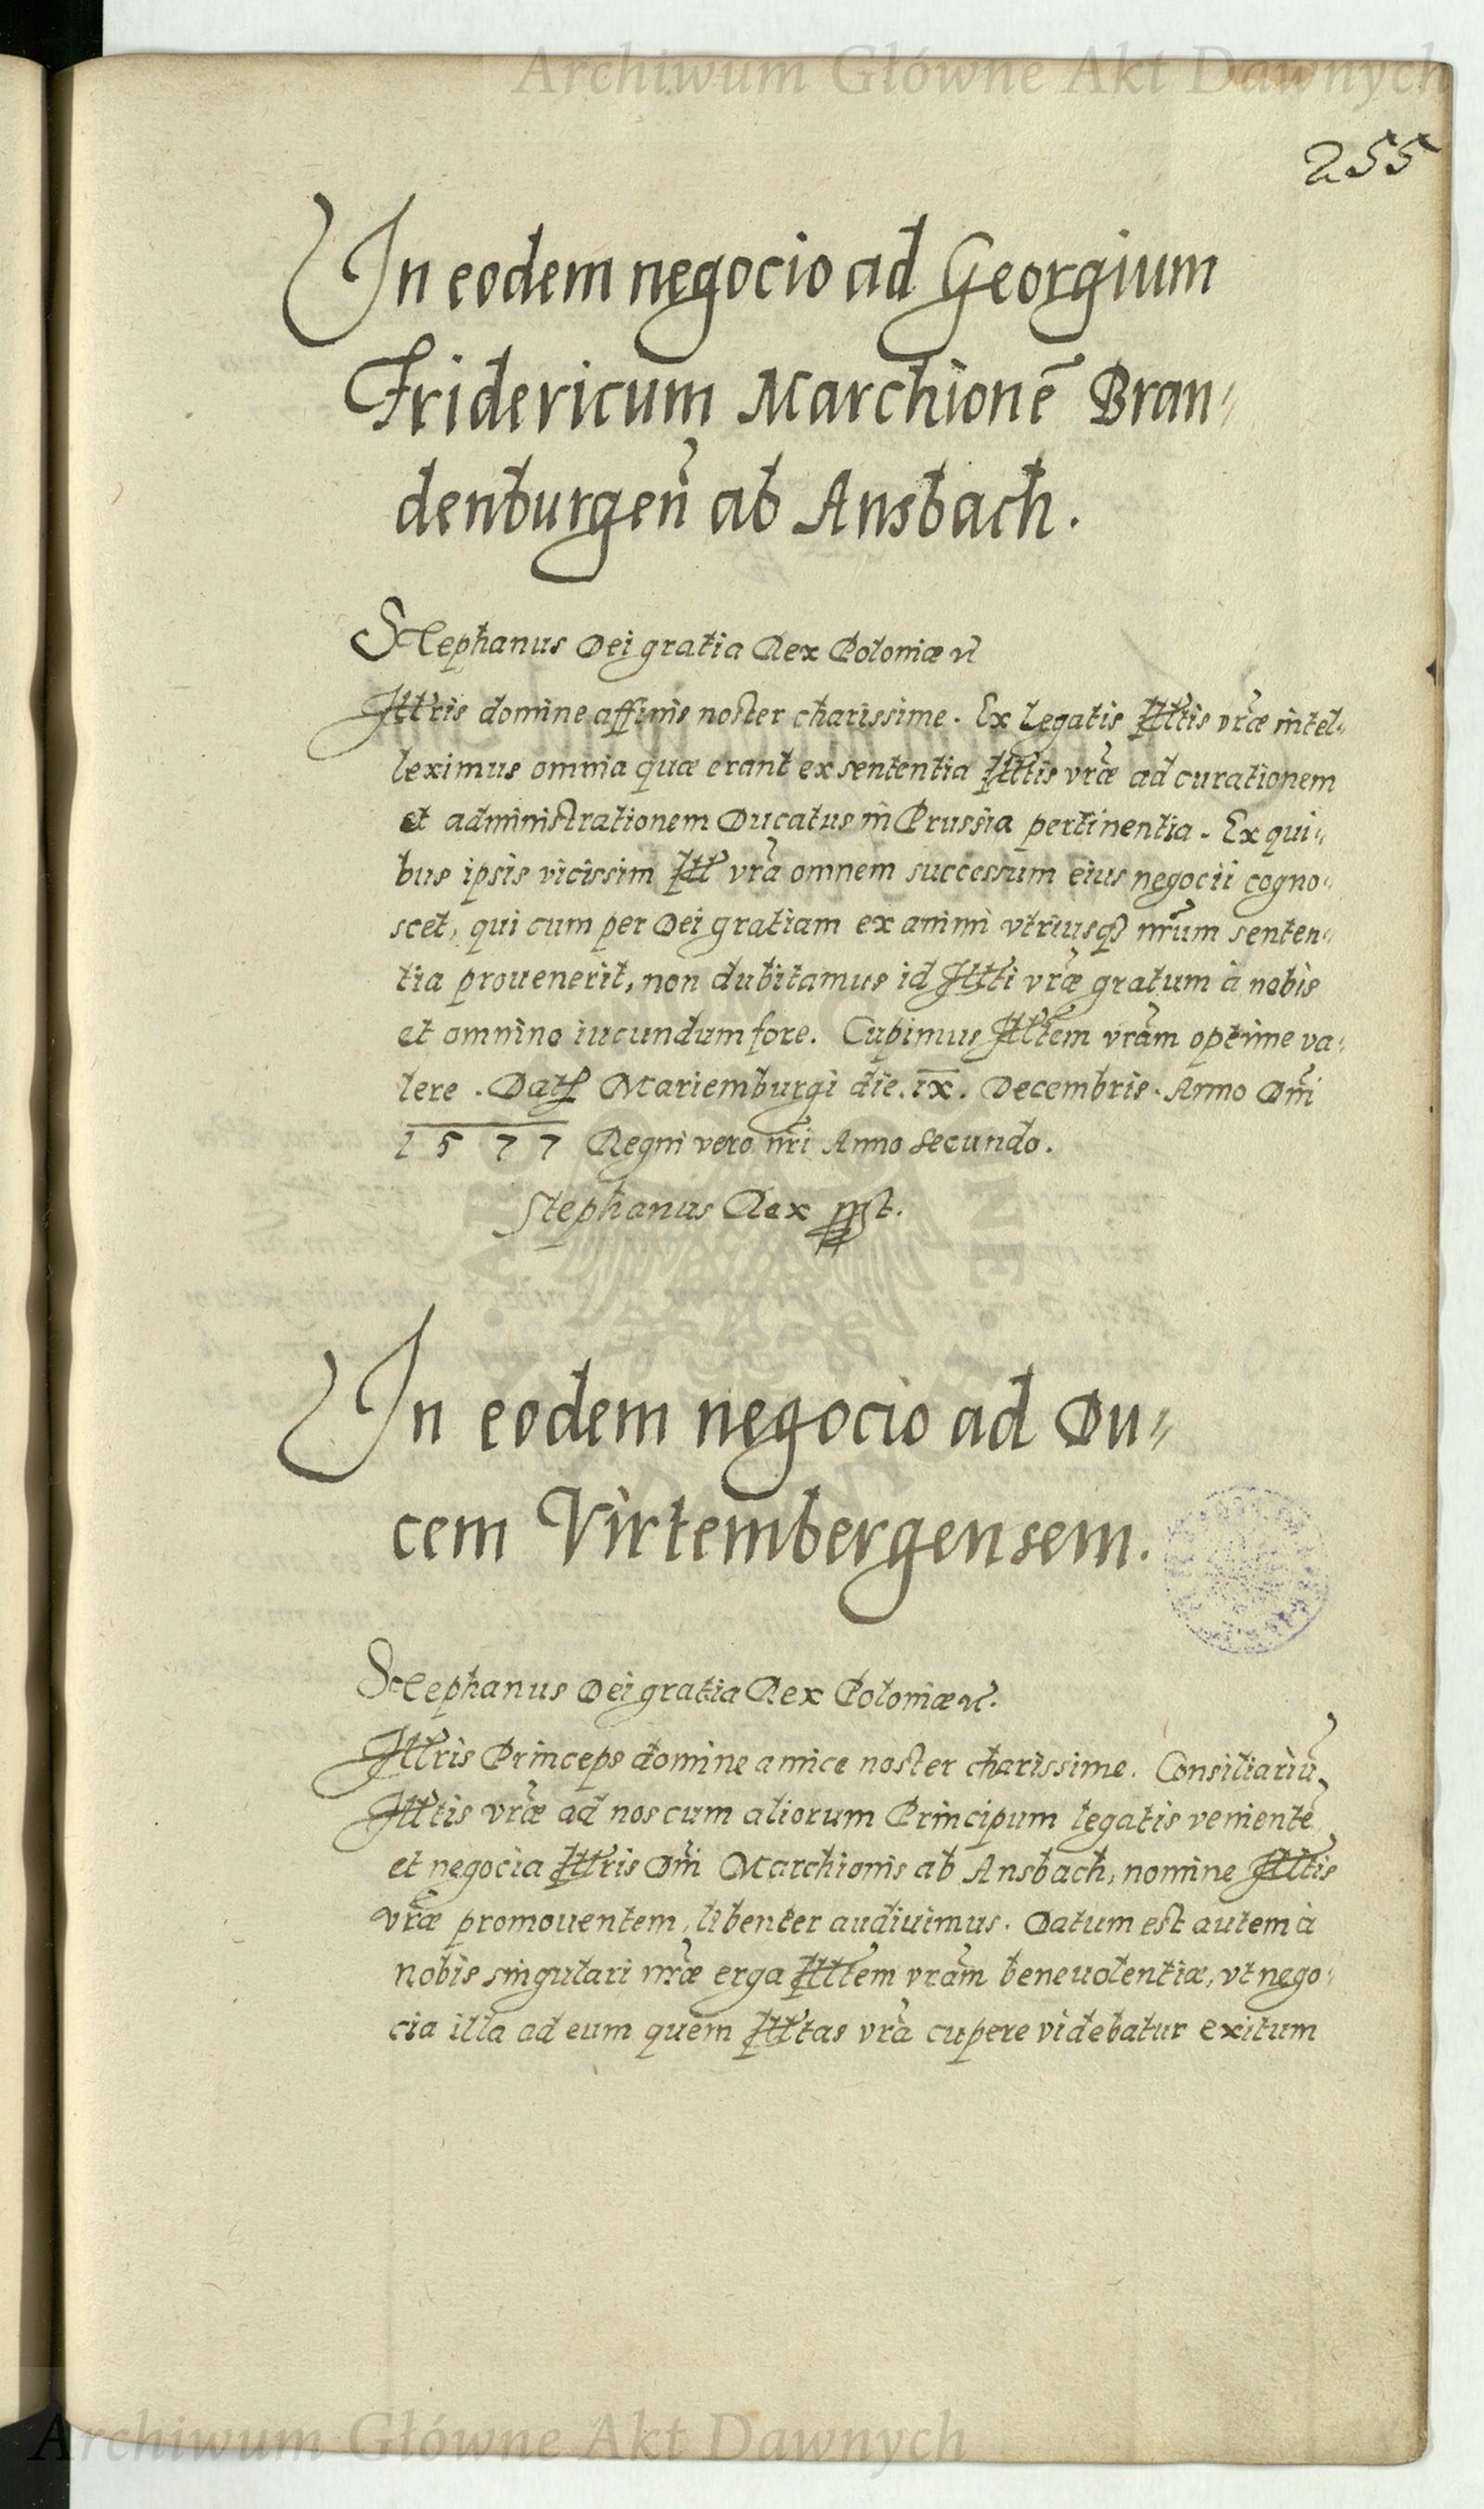 Archiwum Główne Akt Dawnych
255
In eodem negocio ad Georgium
Fridericum Marchionē Bran⸗
denburgeñ ab Ansbach.
Stephanus Dei gratia Rex Poloniæ ꝛc̃
Illris domine affinis noster charissime. Ex Legatis Illtis vr̃æ intel⸗
leximus omnia quæ erant ex sententia Illtis vr̃æ ad curationem
et administrationem Ducatus in Prussia pertinentia. Ex qui⸗
bus ipsis vicissim Ill vr̃a omnem successum eius negocii cogno⸗
scet, qui cum per Dei gratiam ex animi vtriusqꝫ nr̃um senten⸗
tia prouenerit, non dubitamus id Illti vr̃æ gratum à nobis
et omnino iucundum fore. Cupimus Illtem vr̃am optime va⸗
lere. Datꝭ Mariemburgi die. ix. Decembris. Anno Dñi
1577 Regni vero nr̃i Anno Secundo.
Stephanus Rex sst.
In eodem negocio ad Du⸗
cem Virtembergensem.
Stephanus Dei gratia Rex Poloniæ ꝛc̃.
Illris Princeps domine amice noster charissime. Consiliariū
Illtis vr̃æ ad nos cum aliorum Principum legatis venientē
et negocia Illris Dñi Marchionis ab Ansbach, nomine Illtis
vr̃æ promouentem, libenter audiuimus. Datum est autem à
nobis singulari nr̃æ erga Illtem vr̃am beneuolentiæ, vt nego⸗
cia illa ad eum quem Illtas vr̃a cupere videbatur exitum
Archiwum Główne Akt Dawnych